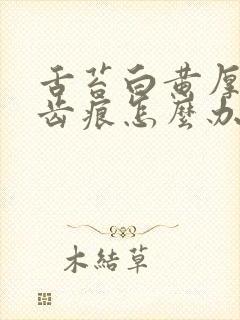 舌苔白黄厚
齿痕怎麼办
木結草